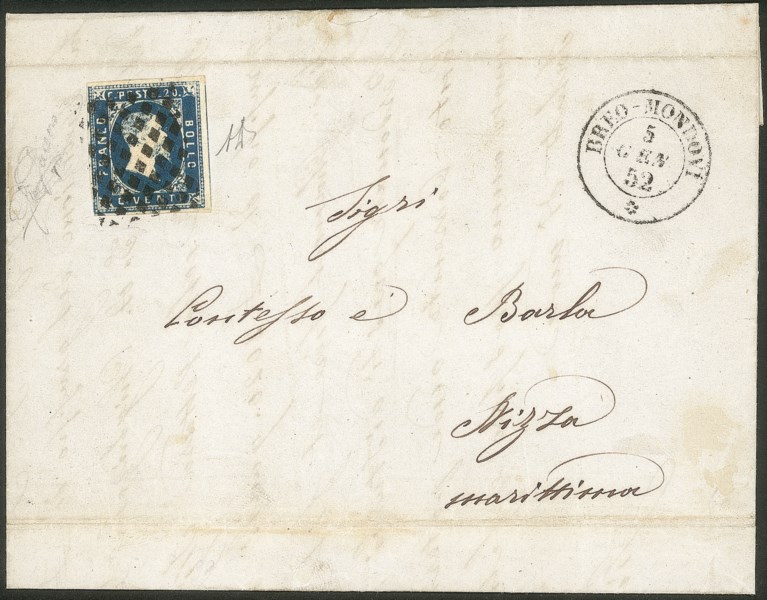 C. POSTE. 20.
FRANCO
BOLLO
C. VENTI
BREO-MONDOVI
5
GEN
52
Sigri
Contesso e Barla
Nizza
marittima